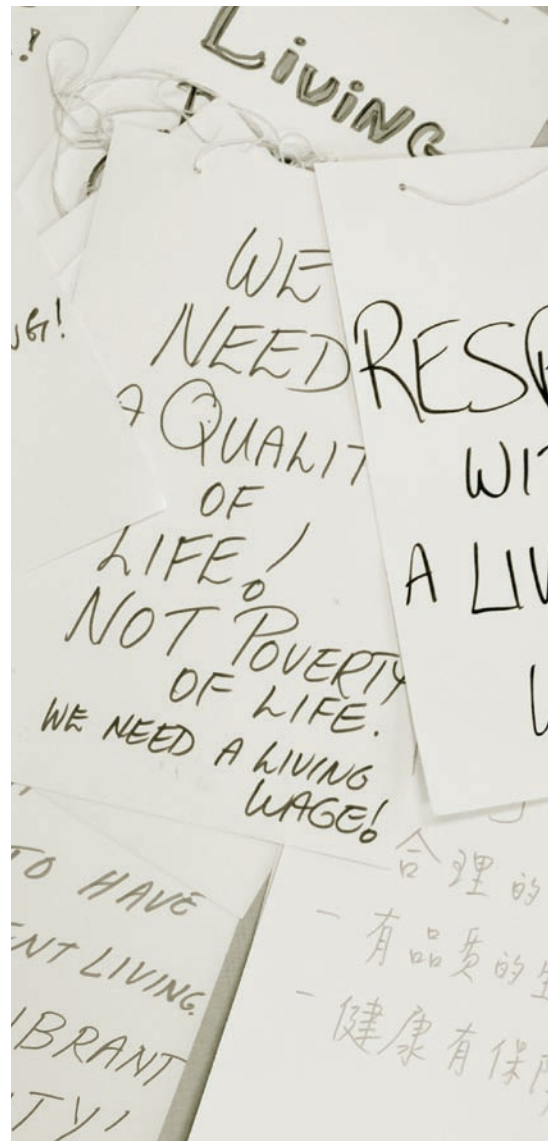 !
Living
T
WE
NEED
A QUALIT
OF
LIFE!
NOT POVERTY
OF LIFE.
WE NEED A LIVING
WAGE!
NG!
RESP
WIT
A LIV
W
TO HAVE
ENT LIVING.
IBRANT
ITY!
合理的
一有品质的生
一健康有保障